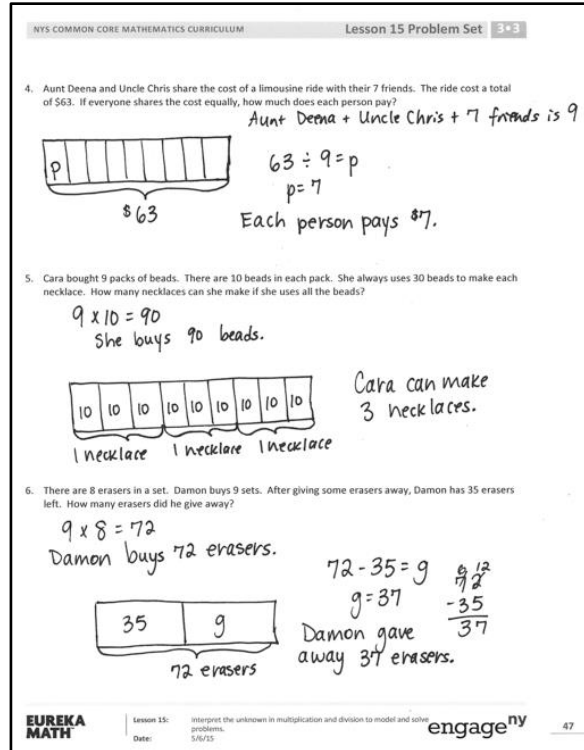 NYS COMMON CORE MATHEMATICS CURRICULUM
Lesson 15 Problem Set
3•3
4. Aunt Deena and Uncle Chris share the cost of a limousine ride with their 7 friends. The ride cost a total
of $63. If everyone shares the cost equally, how much does each person pay?
Aunt Deena + Uncle Chris + 7 friends is 9
p
$63
63 ÷ 9 = p
p = 7
Each person pays $7.
5. Cara bought 9 packs of beads. There are 10 beads in each pack. She always uses 30 beads to make each
necklace. How many necklaces can she make if she uses all the beads?
9 x 10 = 90
She buys 90 beads.
10 10 10 10 10 10 10 10 10
1 necklace 1 necklace 1 necklace
Cara can make
3 necklaces.
6. There are 8 erasers in a set. Damon buys 9 sets. After giving some erasers away, Damon has 35 erasers
left. How many erasers did he give away?
9 x 8 = 72
Damon buys 72 erasers.
35 g
72 erasers
72 - 35 = g
g = 37
6 12
72
-35
37
Damon gave
away 37 erasers.
EUREKA
MATH
Lesson 15:
Interpret the unknown in multiplication and division to model and solve
problems.
Date:
5/6/15
engage ny
47